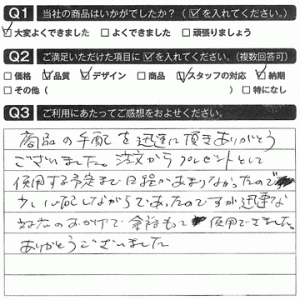 Q1 当社の商品はいかがでしたか？（☑を入れてください。）
☑大変よくできました □よくできました □頑張りましょう
Q2 ご満足いただけた項目に☑を入れてください。（複数回答可）
□価格 ☑品質 ☑デザイン □商品 ☑スタッフの対応 ☑納期
□その他（ ） □特になし
Q3 ご利用にあたってご感想をおよせください。
商品の手配を迅速に頂きありがとう
ございました。注文からプレゼントとして
使用する予定まで日程があまりなかったので
少し心配しながらであったのですが迅速な
対応のおかげで余裕もって使用できました。
ありがとうございました